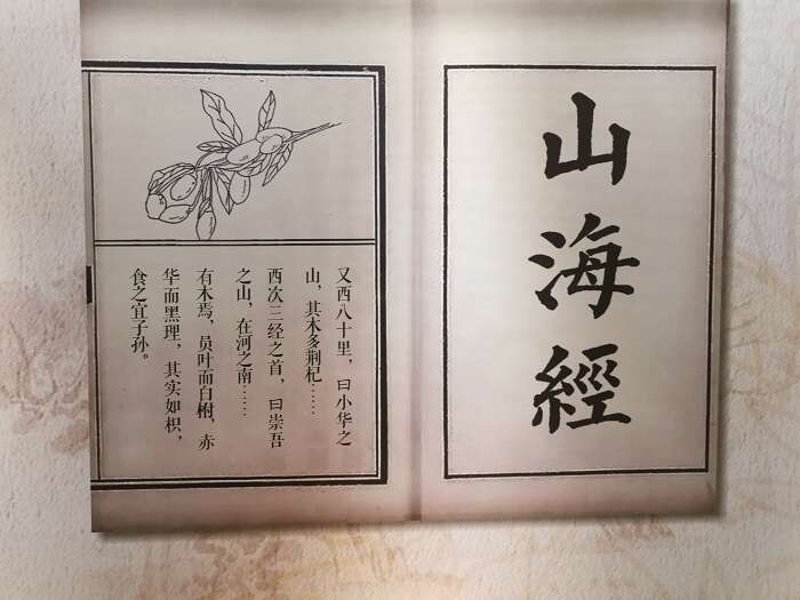 山海經
又西八十里，曰小华之
山，其木多荆杞……
西次三经之首，曰崇吾
之山，在河之南……
有木焉，员叶而白柎，赤
华而黑理，其实如枳，
食之宜子孙。